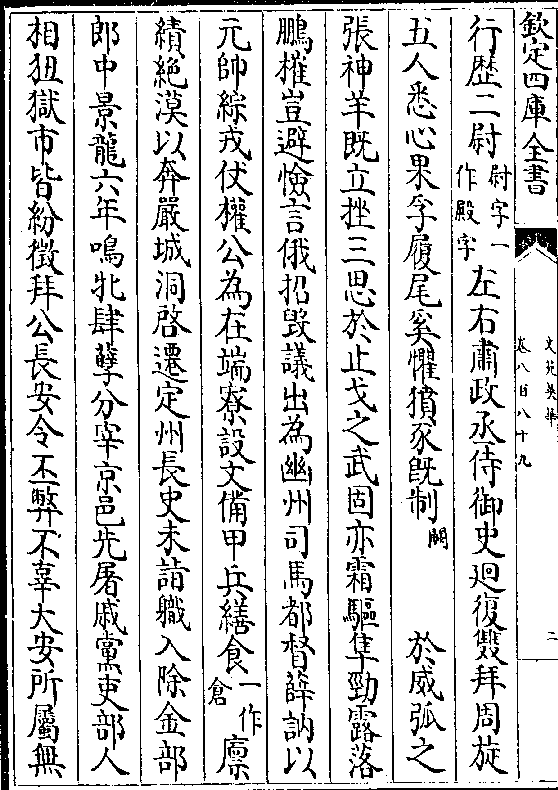 欽定四庫全書
文苑英華
卷八百八十九
二
行歴二尉尉字一作殿字左右肅政丞侍御史廻復雙拜周旋
五人悉心果孚履尾奚懼豶豕旣制闕 於威弧之
張神羊既立挫三思於止戈之武固亦霜驅隼勁露落
鵬摧豈避憸言俄招毁議出為幽州司馬都督薛訥以
元帥綜戎仗權公為在端寮設文備甲兵繕食一作倉廪
績絶漠以奔嚴城洞啓遷定州長史未詣職入除金部
郎中景龍六年鳴牝肆孽分宰京邑先屠戚黨吏部人
相狃獄市皆紛徵拜公長安令丕弊不辜大安所屬無